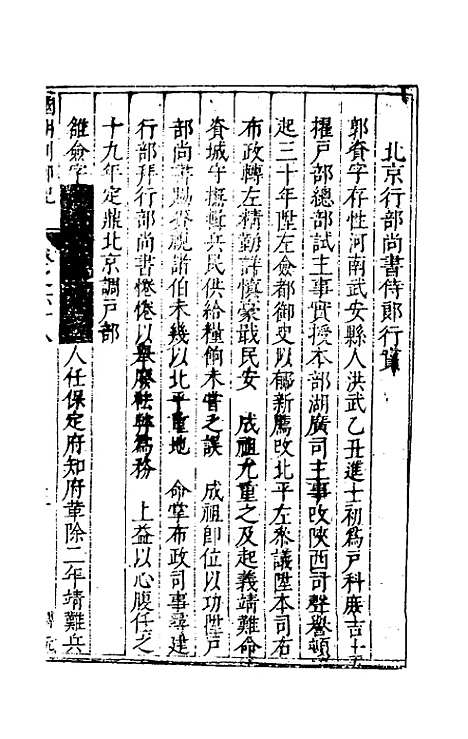 北京行部尚書侍郎行實
郭資字存性河南武安縣人洪武乙丑進士初爲戶科庶吉士
擢戶部總部試主事實授本部湖廣司主事改陝西司聲譽頓
起三十年陞左僉都御史以郁新薦改北平左叅議陞本司右
布政轉左精勤詳慎豪戢民安 成祖尤重之及起義靖難命
資城守撫輯兵民供給糧餉未嘗乏誤 成祖即位以功陞戶
部尚書賜 以北平重地 命掌布政司事尋建
行部拜行部尚書惓惓以舉廢袪弊爲務 上益以心腹任之
十九年定鼎北京調戶部
雒僉字 人任保定府知府革除二年靖難兵